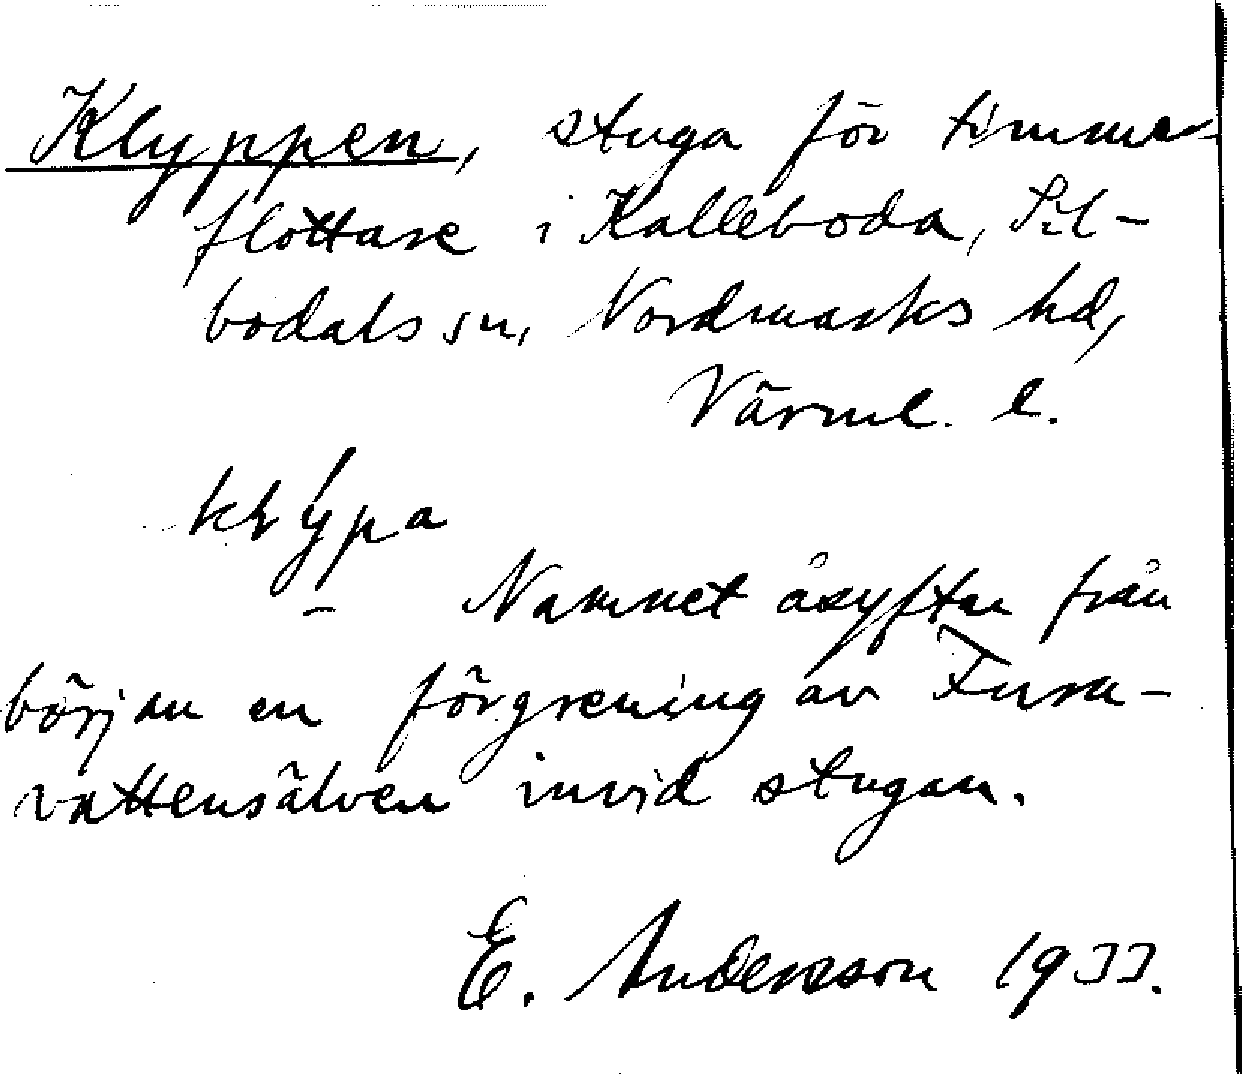 Klyppen, stuga för timmer-
flottare i Kalleboda, Sil-
bodals sn, Nordmarks hd,
Värml. l.
klýpa
– Namnet åsyftar från
början en förgrening av Fura-
vattensälven invid stugan.
E. Andersson 1933.